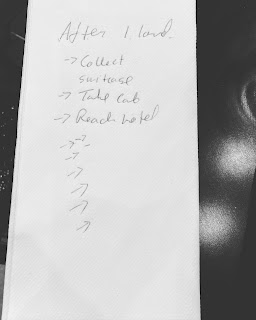 After I land.
→ Collect
suitcase
→ Take cab
→ Reach hotel
→→-
→
→
→
→
→